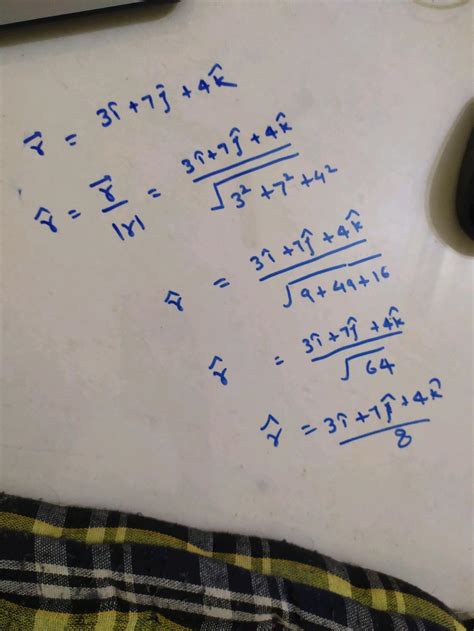 r⃗ = 3î+7ĵ+4k̂
r̂ = r⃗/|r| = (3î+7ĵ+4k̂)/√(3²+7²+4²)
r̂ = (3î+7ĵ+4k̂)/√(9+49+16)
r̂ = (3î+7ĵ+4k̂)/√64
r̂ = (3î+7ĵ+4k̂)/8